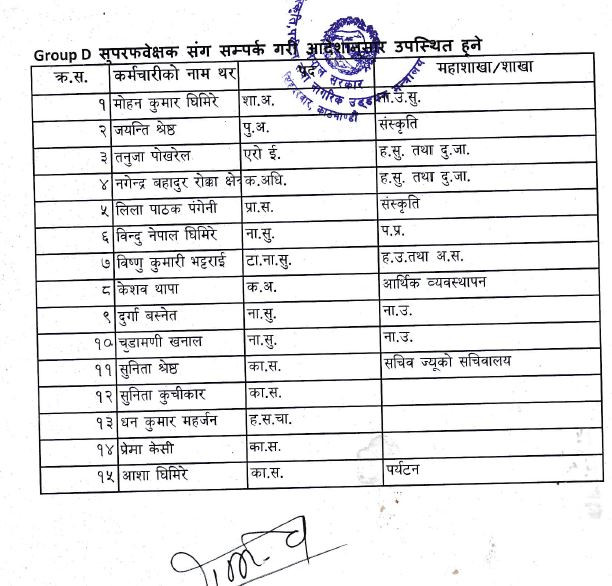 Group D सुपरफवेक्षक संग सम्पर्क गरी आदेशानुसार उपस्थित हुने
क्र.स. कर्मचारीको नाम थर पद महाशाखा/शाखा
१ मोहन कुमार घिमिरे शा.अ. ना.उ.सु.
२ जयन्ति श्रेष्ठ पु.अ. संस्कृति
३ तनुजा पोखरेल एरो ई. ह.सु. तथा दु.जा.
४ नगेन्द्र बहादुर रोका क्षेत्र क.अधि. ह.सु. तथा दु.जा.
५ लिला पाठक पंगेनी प्रा.स. संस्कृति
६ विन्दु नेपाल घिमिरे ना.सु. प.प्र.
७ विष्णु कुमारी भट्टराई टा.ना.सु. ह.उ.तथा अ.स.
८ केशव थापा क.अ. आर्थिक व्यवस्थापन
९ दुर्गा बस्नेत ना.सु. ना.उ.
१० चुडामणी खनाल ना.सु. ना.उ.
११ सुनिता श्रेष्ठ का.स. सचिव ज्यूको सचिवालय
१२ सुनिता कुचीकार का.स.
१३ धन कुमार महर्जन ह.स.चा.
१४ प्रेमा केसी का.स.
१५ आशा घिमिरे का.स. पर्यटन
नेपाल सरकार
नागरिक उड्डयन मन्त्रालय
सिंहदरबार, काठमाण्डौ